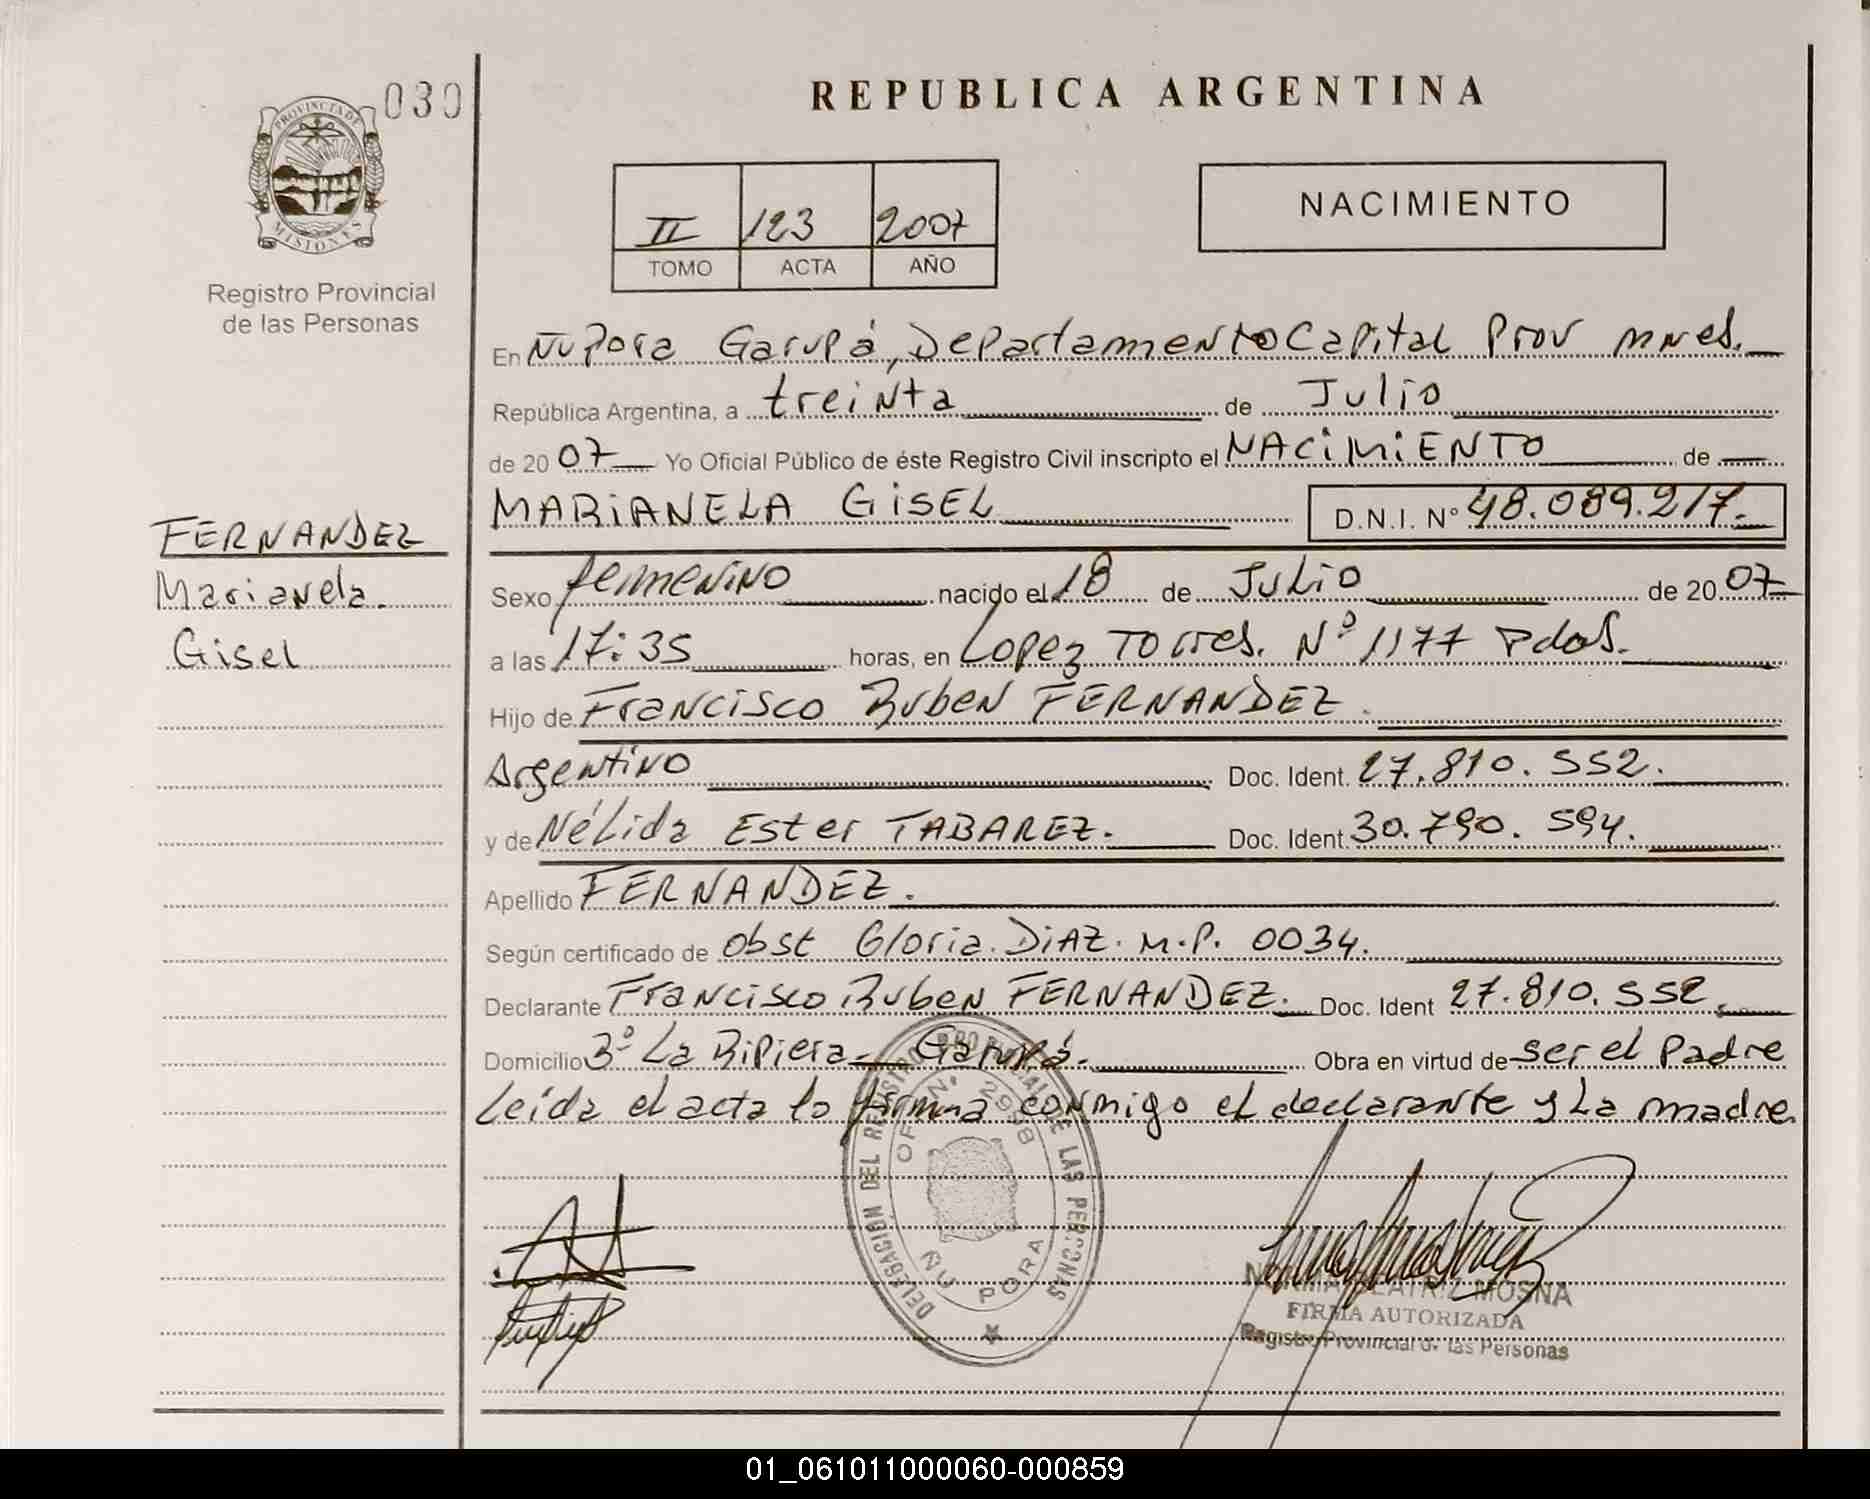 REPUBLICA ARGENTINA
030
PROVINCIA DE
MISIONES
Registro Provincial
de las Personas
II 123 2007
TOMO ACTA AÑO
NACIMIENTO
En Ñu Pora Garupá, Departamento Capital Prov mnes.
República Argentina, a treinta de Julio
de 2007 Yo Oficial Público de éste Registro Civil inscripto el NACIMIENTO de
MARIANELA GISEL D.N.I. Nº 48.089.217.
FERNANDEZ
Marianela
Gisel
Sexo femenino nacido el 18 de Julio de 2007
a las 17:35 horas, en Lopez Torres. Nº 1177 Pdas.
Hijo de Francisco Ruben FERNANDEZ.
Argentino Doc. Ident. 27.810.552.
y de Nélida Ester TABAREZ. Doc. Ident 30.790.594.
Apellido FERNANDEZ.
Según certificado de obst Gloria. DIAZ. M.P. 0034.
Declarante Francisco Ruben FERNANDEZ. Doc. Ident 27.810.552.
Domicilio Bº La Ripiera - Garupá. Obra en virtud de ser el Padre
Leída el acta la firma conmigo el declarante y La madre.
DELEGACIÓN DEL REGISTRO PROVINCIAL DE LAS PERSONAS
OF. N. 2958
ÑU PORA
NORMA BEATRIZ MOSNA
FIRMA AUTORIZADA
Registro Provincial de las Personas
01_061011000060-000859